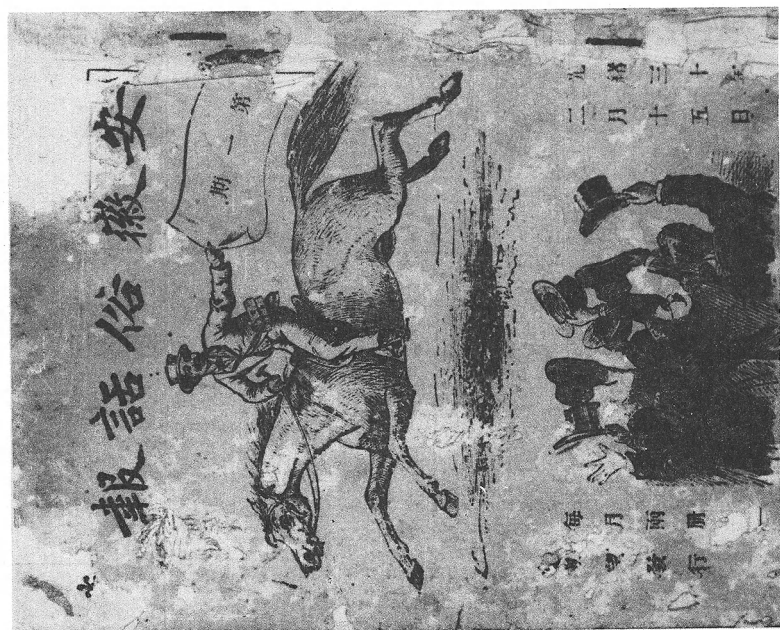 安徽俗話報
第一期
光緒三十年
二月十五日
每月兩册
朔望發行